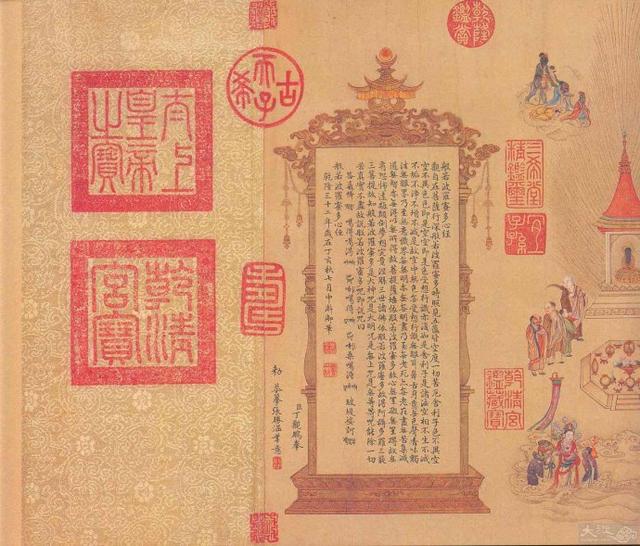 乾隆鑑賞
三希堂精鑑璽
宜子孫
乾清宮鑑藏寶
般若波羅蜜多心經
觀自在菩薩行深般若波羅蜜多時照見五蘊皆空度一切苦厄舍利子色不異空
空不異色色即是空空即是色受想行識亦復如是舍利子是諸法空相不生不滅
不垢不淨不增不減是故空中無色無受想行識無眼耳鼻舌身意無色聲香味觸
法無眼界乃至無意識界無無明亦無無明盡乃至無老死亦無老死盡無苦集滅
道無智亦無得以無所得故菩提薩埵依般若波羅蜜多故心無罣礙無罣礙故無
有恐怖遠離顛倒夢想究竟涅槃三世諸佛依般若波羅蜜多故得阿耨多羅三藐
三菩提故知般若波羅蜜多是大神咒是大明咒是無上咒是無等等咒能除一切
苦真實不虛故說般若波羅蜜多咒即說咒曰
般若波羅蜜多心經
乾隆三十二年歲在丁亥秋七月中澣御筆
臣丁觀鵬奉
勅恭摹張勝温筆意
古希天子
壽
太上皇帝之寶
乾清宮寶